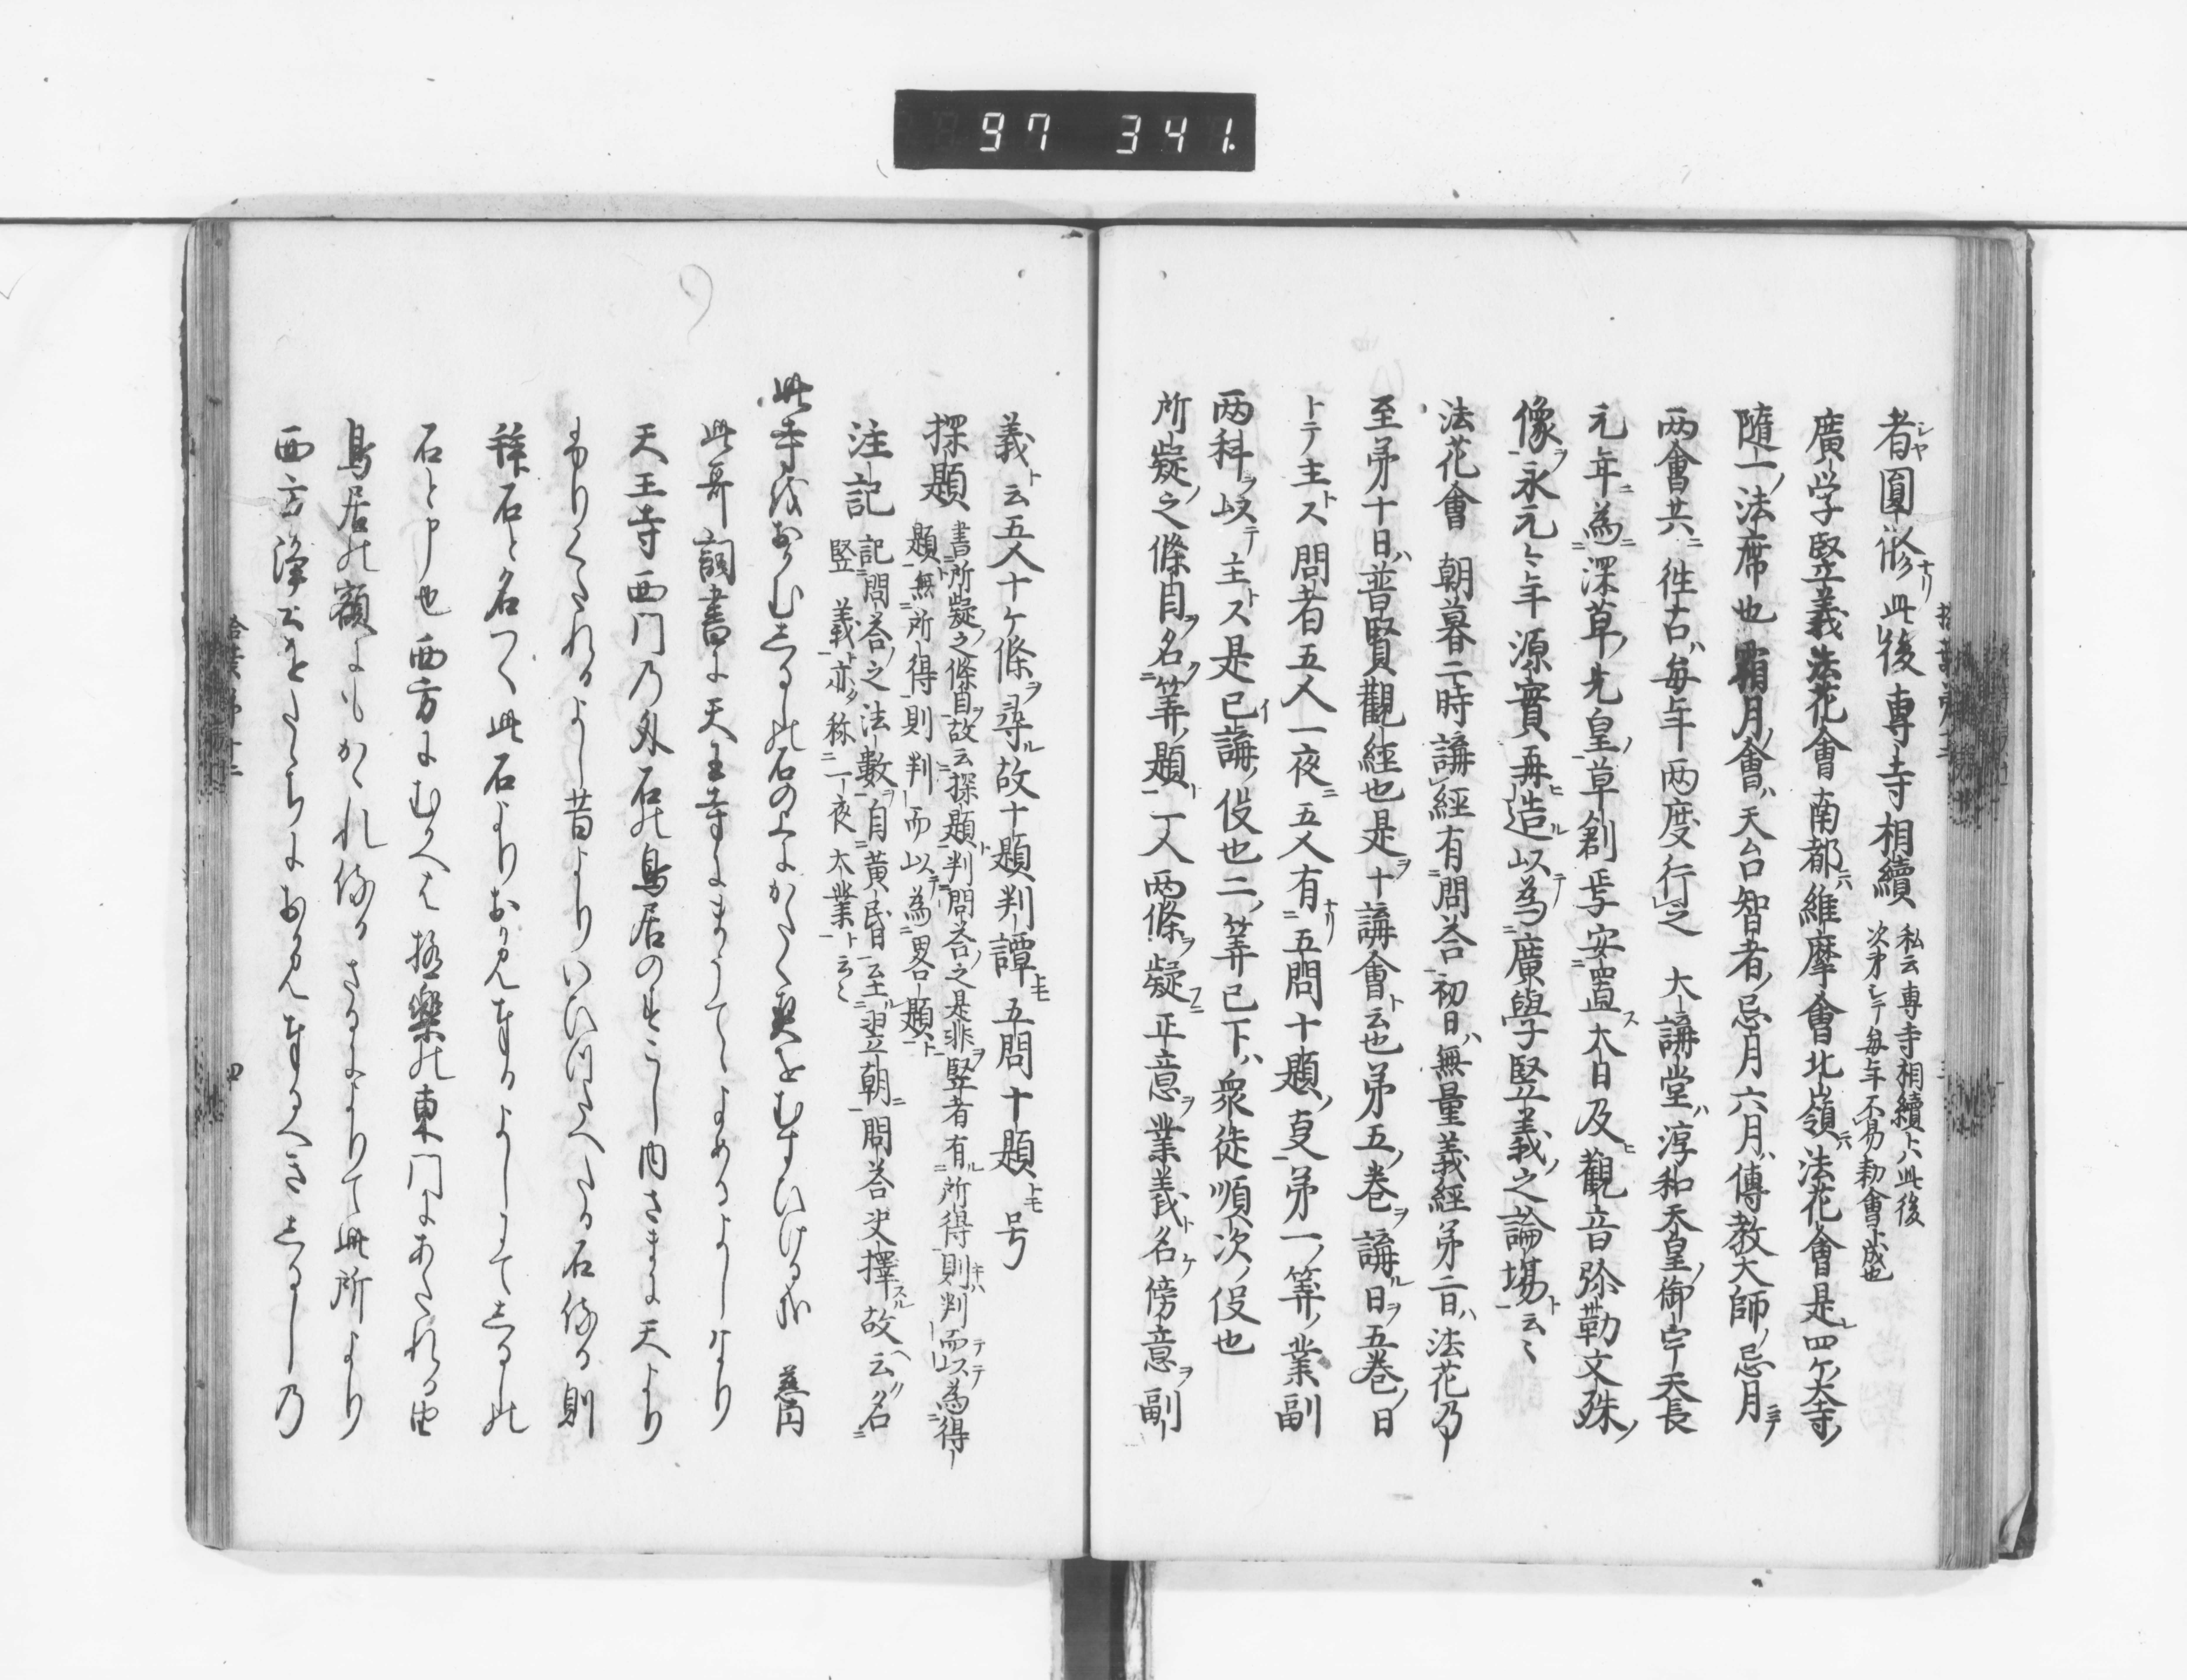 97 341.
者圓修ナリ此後專寺相續 私云專寺相續ト八此後
次第シテ毎年不易勅會ト成也
廣学竪義法花會南都六維摩會北嶺六法花會是四ケ大寺ノ
隨一ノ法席也霜月會ハ天台智者ノ忌月六月ハ傳教大師ノ忌月
两會共ニ徃古ハ毎年两度行之 大講堂ハ淳和天皇ノ御宇天長
元年ニ為深草ノ先皇ノ草創焉安置ス大日及ヒ觀音弥勒文殊ノ
像ヲ永元々年源實再ヒ造ル以テ為廣學竪義ノ之論場ト云々
法花會 朝暮二時講經有問答初日ハ無量義經弟二日ハ法花乃
至弟十日ハ普賢觀經也是ヲ十講會ト云也弟五ノ巻ヲ講ル日ヲ五巻ノ日
トテ主トス問者五人一夜ニ五人有ナリ五問十題ノ夏弟一ノ筭ノ業副
两科ヲ以テ主トス是已講ノ役也二ノ筭已下ハ衆徒順次ノ役也
所疑ノ之條目ヲ名ク筭題ト一人两條ヲ疑フニ正意ヲ業義ト名ケ傍意ヲ副
義ト云五人十ケ條ヲ尋ル故十題判譚トモ五問十題トモ号
探題 書所疑ノ之條目ヲ故云探題ト判問答ノ之是非ヲ竪者有ル所得則キハ判而以テ為得
題無所得則判而以テ為畧題ト
注記 記問答ノ之法數ヲ自黄昏至ル翌朝ニ問答决擇スル故ヘ云フ名
竪義ト亦ク称ニ一夜大業ト云々
此寺後おかむしるしの石の上にかたく契をむすひけるか 慈円
此哥詞書に天王寺にまうてゝよめるよしなり
天王寺西門乃外石の鳥居のすこし内さまに天より
ふりくたれるよし昔よりいひつたへたる石侍る則
拝石と名つく此石よりおかみ奉るよしにてしるしの
石と申也西方にむかへは極樂の東門にあたれる由
鳥居の額にもかゝれ侍るさるによりて此所より
西方浄土をたゝちにおかみ奉るへきしるし乃
拾葉第十二
四